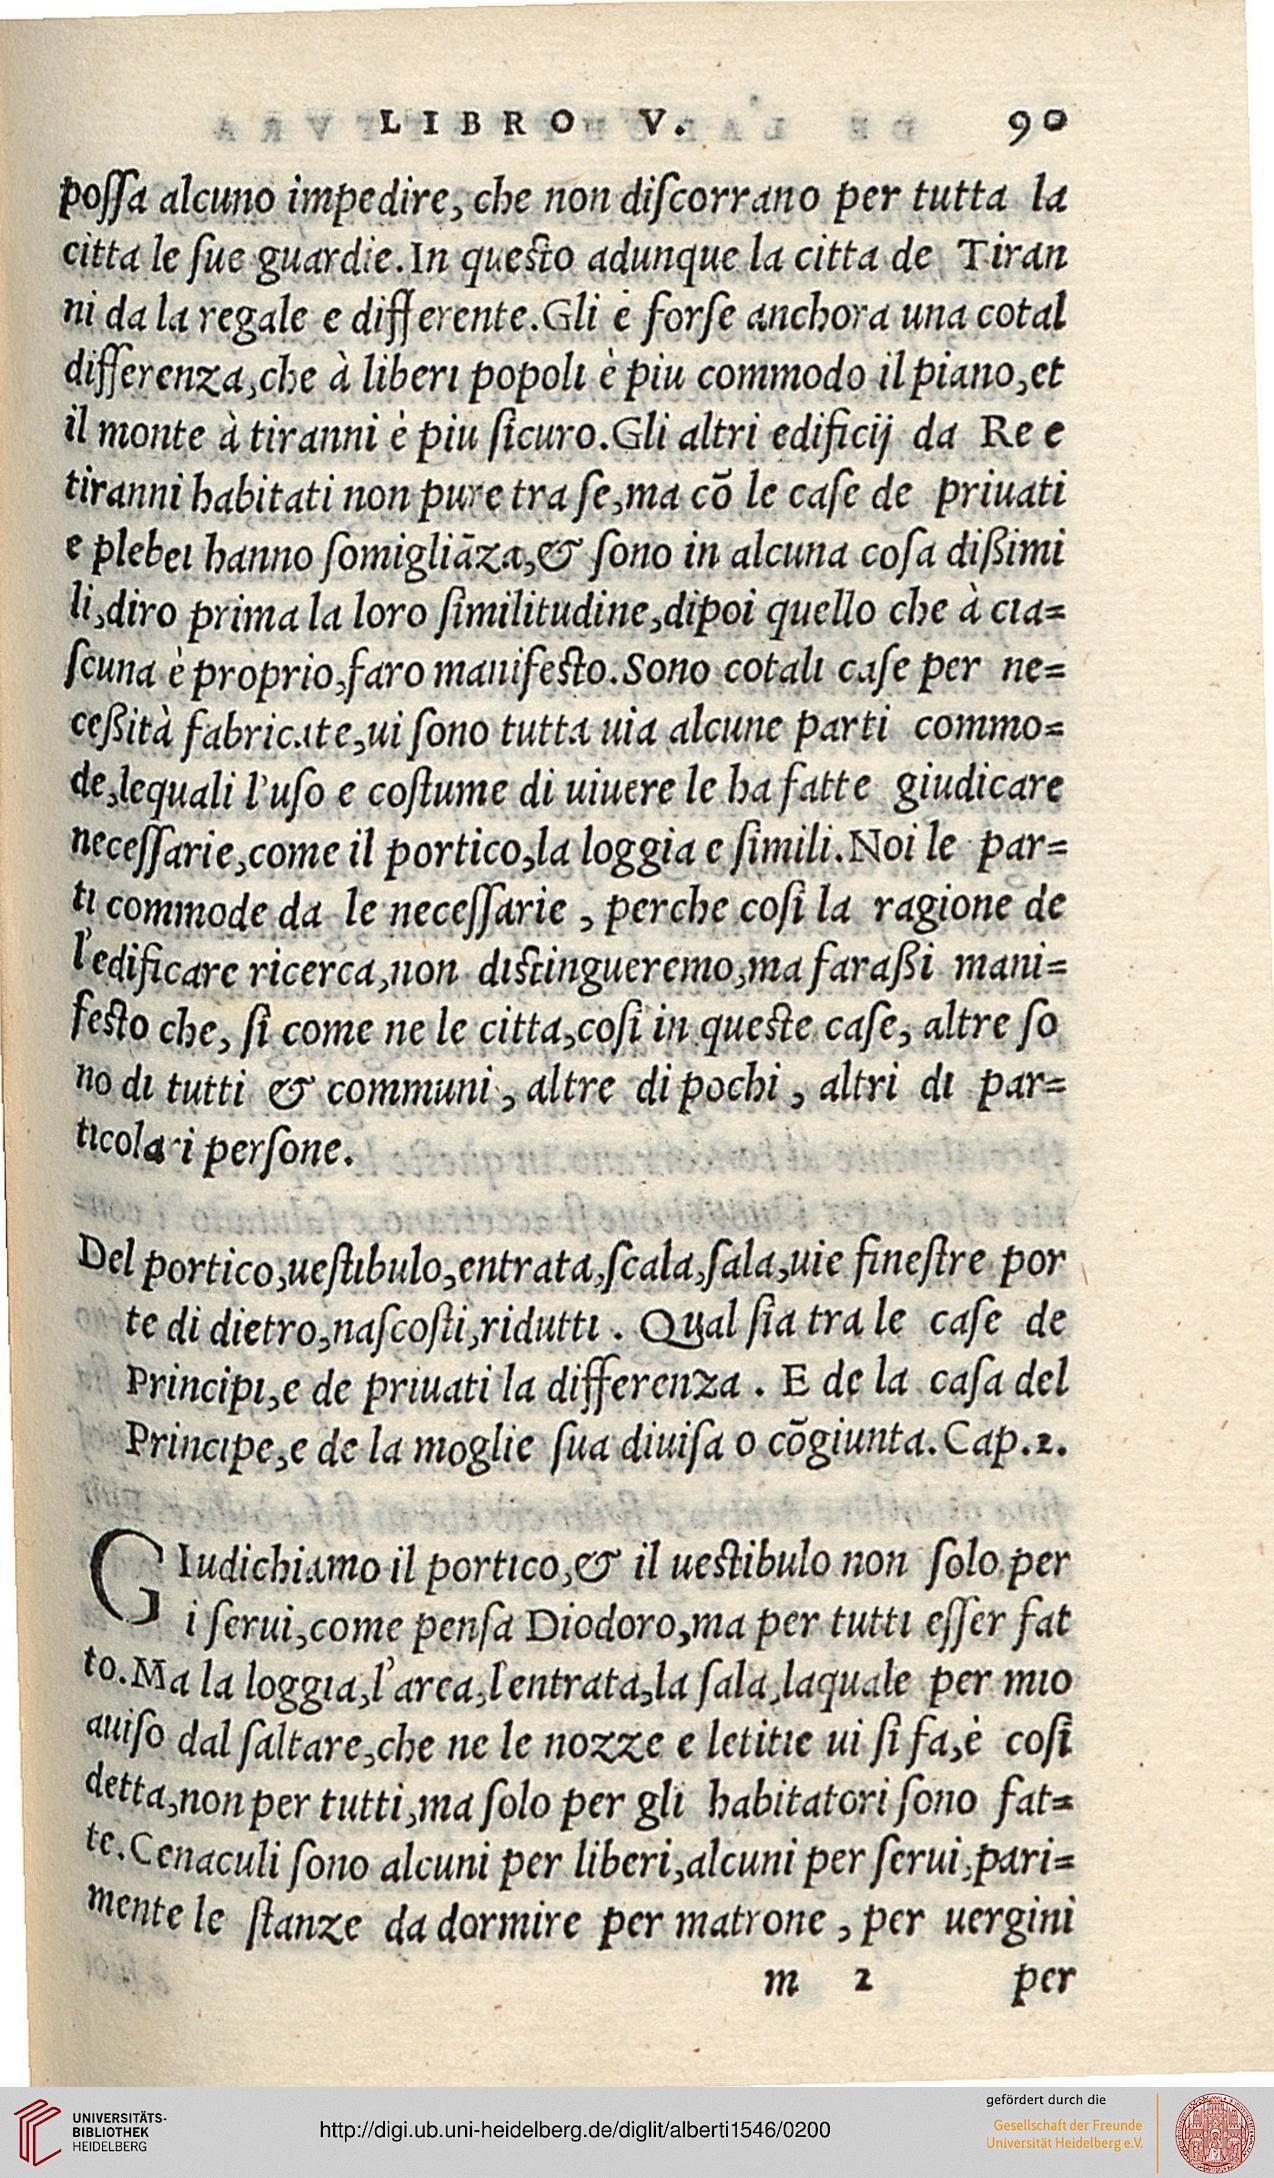 LIBRO V. 90
possa alcuno impedire, che non discorrano per tutta la
citta le sue guardie. In questo adunque la citta de Tiran
ni da la regale e differente. Gli è forse anchora una cotal
differenza, che à liberi popoli è piu commodo il piano, et
il monte à tiranni è piu sicuro. Gli altri edificij da Re e
tiranni habitati non pure tra se, ma cõ le case de priuati
e plebei hanno somigliãza, & sono in alcuna cosa dißimi
li, diro prima la loro similitudine, dipoi quello che à cia=
scuna è proprio, faro manifesto. Sono cotali case per ne=
ceßità fabricate, ui sono tutta uia alcune parti commo=
de, lequali l'uso e costume di uiuere le ha fatte giudicare
necessarie, come il portico, la loggia e simili. Noi le par=
ti commode da le necessarie, perche cosi la ragione de
l'edificare ricerca, non distingueremo, ma faraßi mani=
festo che, si come ne le citta, cosi in queste case, altre so
no di tutti & communi, altre di pochi, altri di par=
ticolari persone.
Del portico, uestibulo, entrata, scala, sala, uie finestre por
te di dietro, nascosti, ridutti. Qual sia tra le case de
Principi, e de priuati la differenza. E de la casa del
Principe, e de la moglie sua diuisa o cõgiunta. Cap. 2.
GIudichiamo il portico, & il uestibulo non solo per
i serui, come pensa Diodoro, ma per tutti esser fat
to. Ma la loggia, l'area, l'entrata, la sala, laquale per mio
auiso dal saltare, che ne le nozze e letitie ui si fa, è cosi
detta, non per tutti, ma solo per gli habitatori sono fat=
te. Cenaculi sono alcuni per liberi, alcuni per serui, pari=
mente le stanze da dormire per matrone, per uergini
m 2 per
UNIVERSITÄTS-
BIBLIOTHEK
HEIDELBERG
http://digi.ub.uni-heidelberg.de/diglit/alberti1546/0200
gefördert durch die
Gesellschaft der Freunde
Universität Heidelberg e.V.